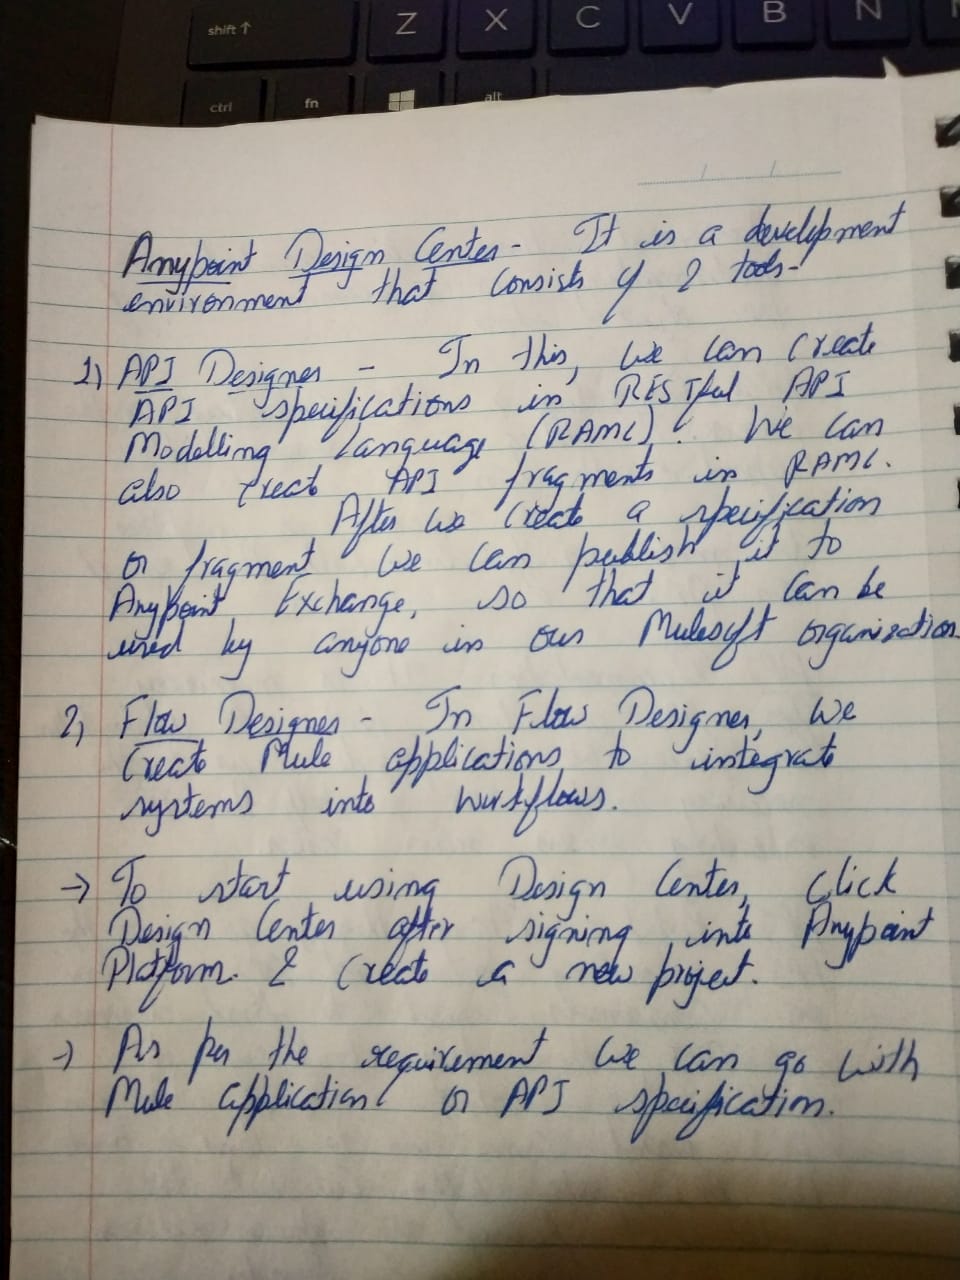 shift ↑ Z X C V B N
ctrl fn alt
Anypoint Design Center - It is a development
environment that consists of 2 tools-
1) API Designer - In this, we can create
API specifications in RESTful API
Modelling Language (RAML). We can
also creat API fragments in RAML.
After we create a specification
or fragment we can publish it to
Anypoint Exchange, so that it can be
used by anyone in our Mulesoft organization.
2) Flow Designer - In Flow Designer, we
create Mule applications to integrate
systems into workflows.
→ To start using Design Center, Click
Design Center after signing into Anypoint
Platform. & Create a new project.
→ As per the requirement we can go with
Mule application or API specification.